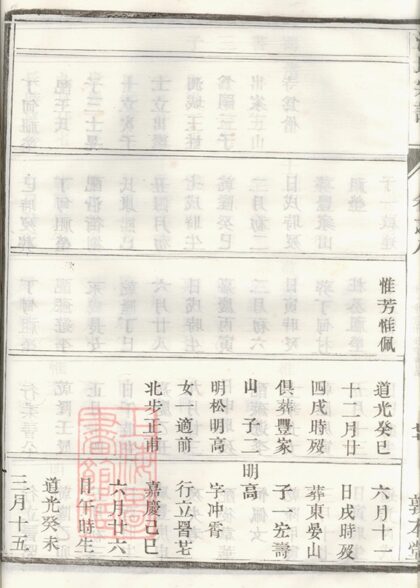 惟芳惟佩
道光癸巳
十二月廿
四戌時殁
俱葬豐家
山 子二
明松明高
女一適前
北步正甫
六月十一
日戌時殁
葬東晏山
子一宏壽
明高
字冲霄
行立晉
嘉慶己巳
六月廿六
日午時生
道光癸未
三月十五